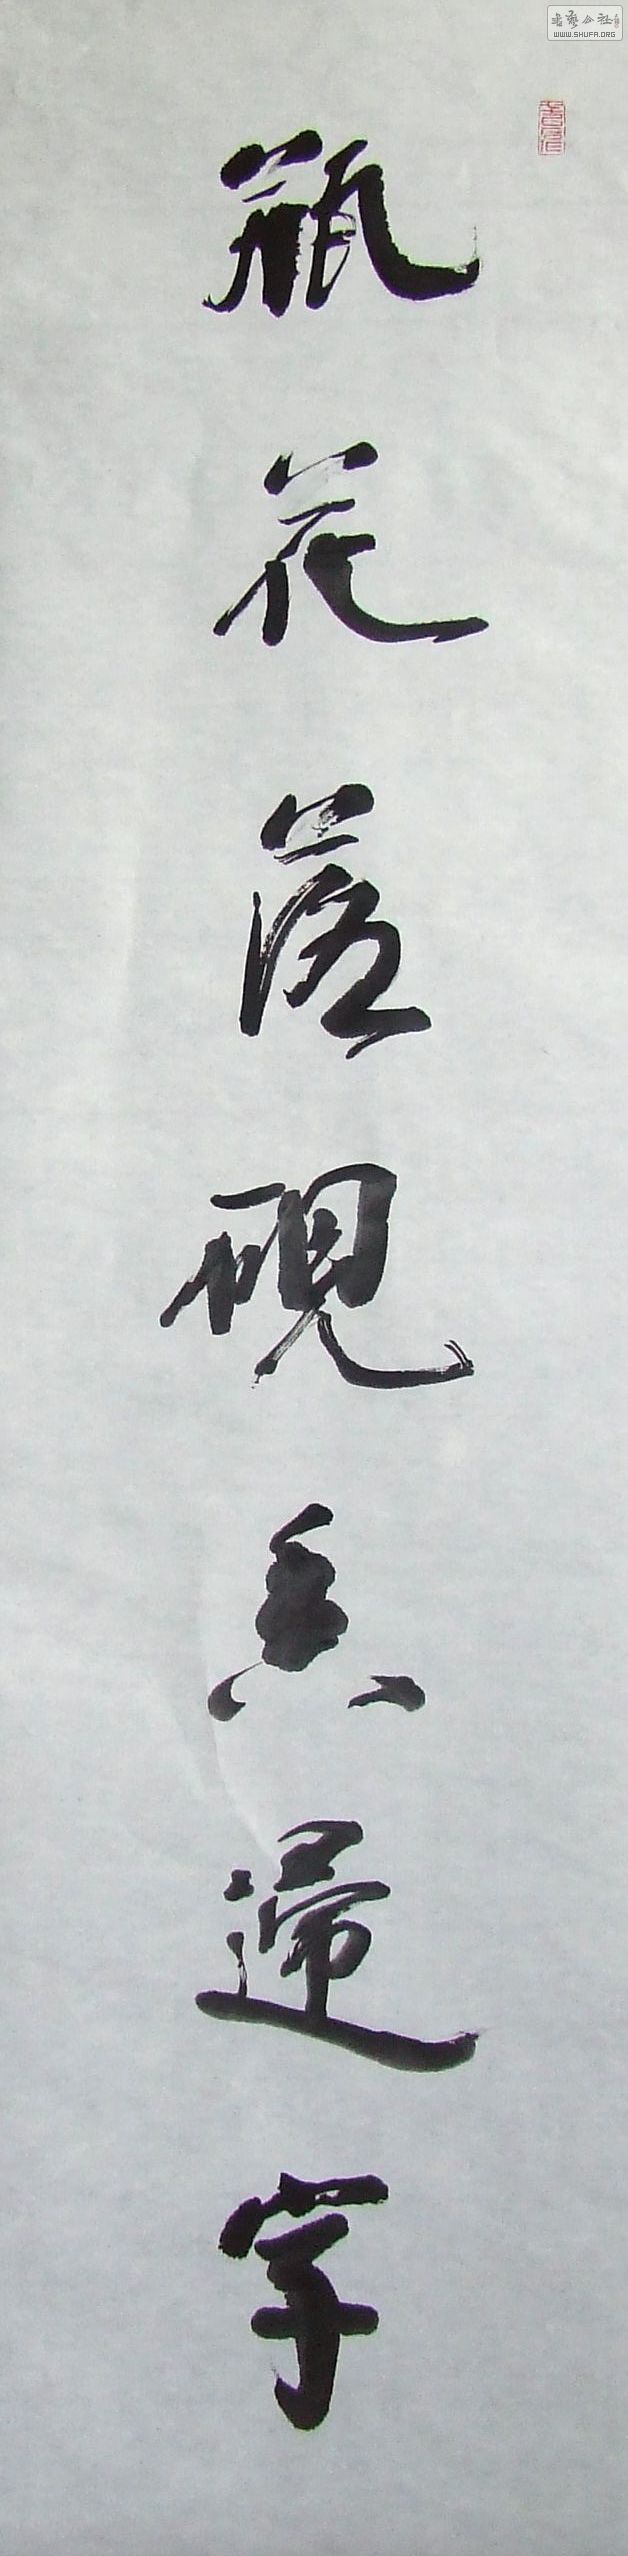 瓶花落硯香歸字
書藝公社
WWW.SHUFA.ORG